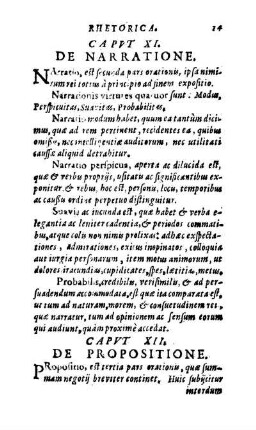 RHETORICA. 14
CAPVT XI.
DE NARRATIONE.
NArratio, est secũda pars orationis, ipsa nimirum
rei totius à principio ad finem expositio.
Narrationis virtutes quatuor sunt: Modus,
Perspicuitas, Suavitas, Probabilitas.
Narratio modum habet, quum ea tantùm dicimus,
quæ ad rem pertinent, recidentes ea, quibus
omissis, nec intelligentiæ auditorum, nec utilitati
caussæ aliquid detrahitur.
Narratio perspicua, aperta ac dilucida est,
quæ & verbis propriis, usitatis ac significantibus exponitur,
& rebus, hoc est, personis, locis, temporibus
ac caussis ordine perpetuo distinguitur.
Suavis ac iucunda est, quæ habet & verba elegantia
ac leniter cadentia, & periodos commatibus,
atque colis non nimis prolixas: adhæc expectationes,
admirationes, exitus inopinatos, colloquia
aut iurgia personarum, item motus animorum, ut
dolores iracundias, cupiditates, spes, lætitias, metus.
Probabilis, credibilis, verisimilis, & ad persuadendum
accommodata, est quæ ita comparata est,
ut tum ad naturam, morem, & consuetudinem rei,
quæ narratur, tum ad opinionem ac sensum eorum
qui audiunt, quàm proximè accedat.
CAPVT XII.
DE PROPOSITIONE.
PRopositio, est tertia pars orationis, quæ summam
negotij breviter continet. Huic subijcitur
interdum